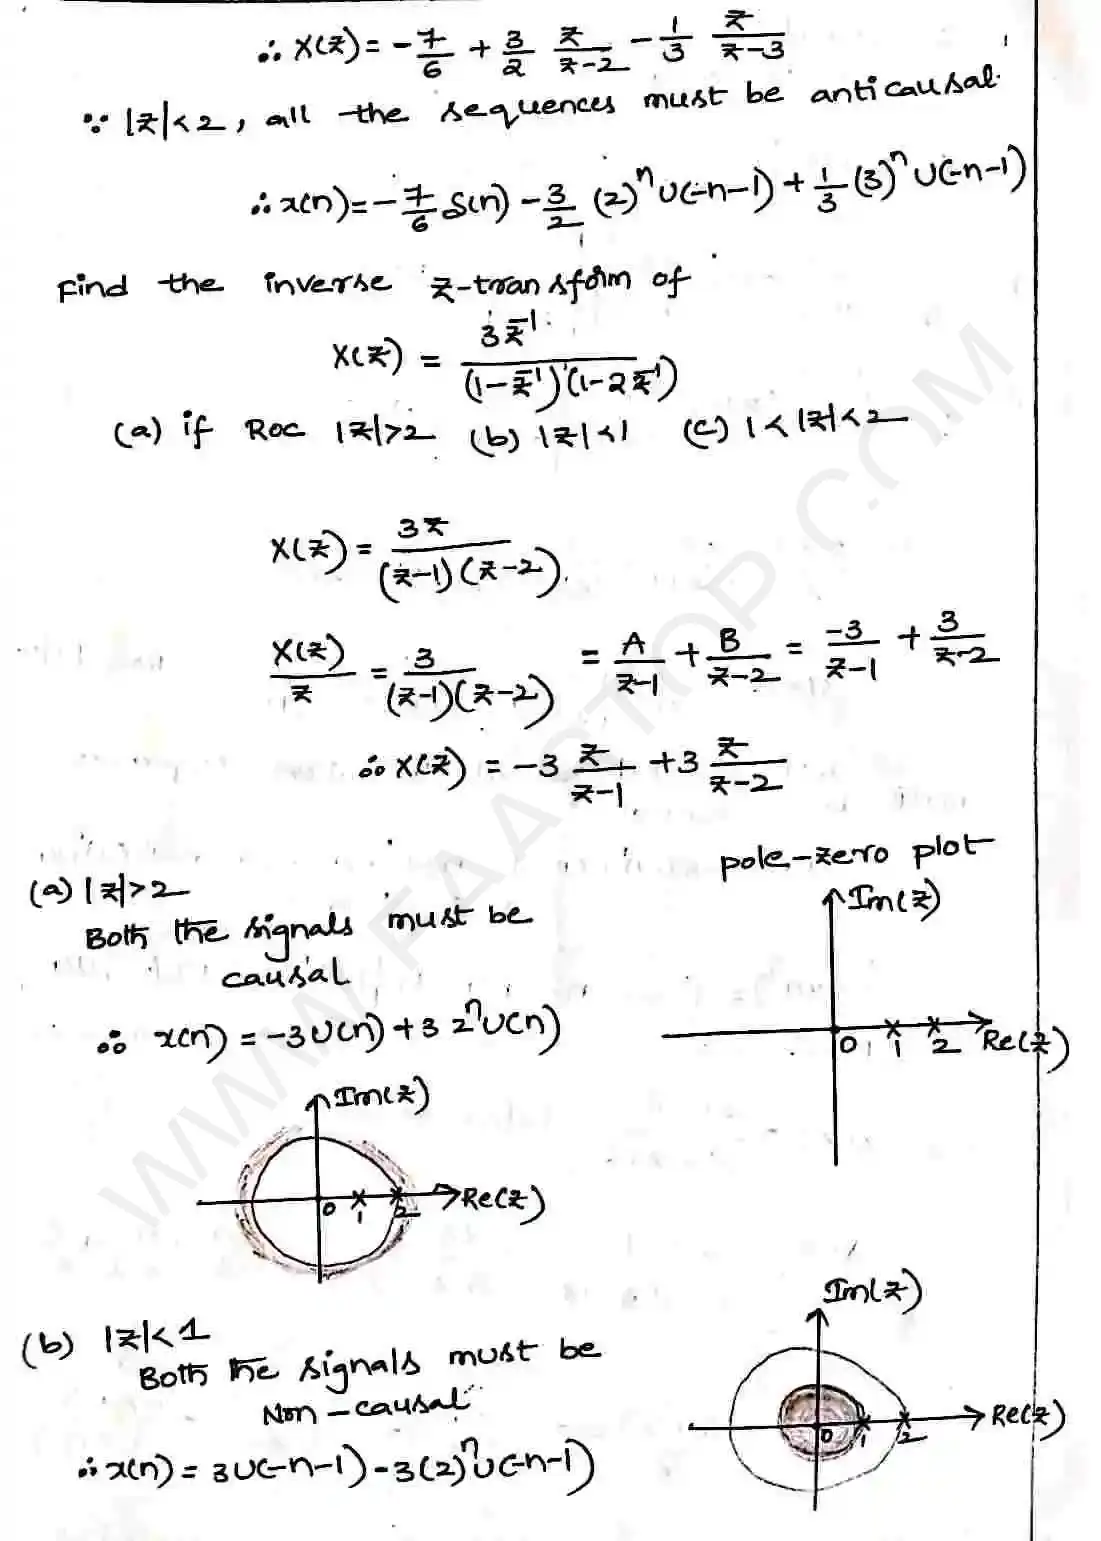 ∴ X(z) = -7/6 + 3/2 z/(z-2) - 1/3 z/(z-3)
∵ |z|<2, all the sequences must be anticausal.
∴ x(n) = -7/6 δ(n) - 3/2 (2)^n U(-n-1) + 1/3 (3)^n U(-n-1)
Find the inverse z-transform of
X(z) = 3z^-1 / (1-z^-1)(1-2z^-1)
(a) if ROC |z|>2 (b) |z|<1 (c) 1<|z|<2
X(z) = 3z / (z-1)(z-2).
X(z)/z = 3/(z-1)(z-2) = A/(z-1) + B/(z-2) = -3/(z-1) + 3/(z-2)
∴ X(z) = -3 z/(z-1) + 3 z/(z-2)
pole-zero plot
(a) |z|>2
Im(z)
Both the signals must be
causal
∴ x(n) = -3U(n) + 3 2^n U(n)
0 1 2 Re(z)
Im(z)
0 1 2 Re(z)
Im(z)
(b) |z|<1
Both the signals must be
Non-causal
0 1 2 Re(z)
∴ x(n) = 3U(-n-1) - 3(2)^n U(-n-1)
WWW.FAASTOP.COM